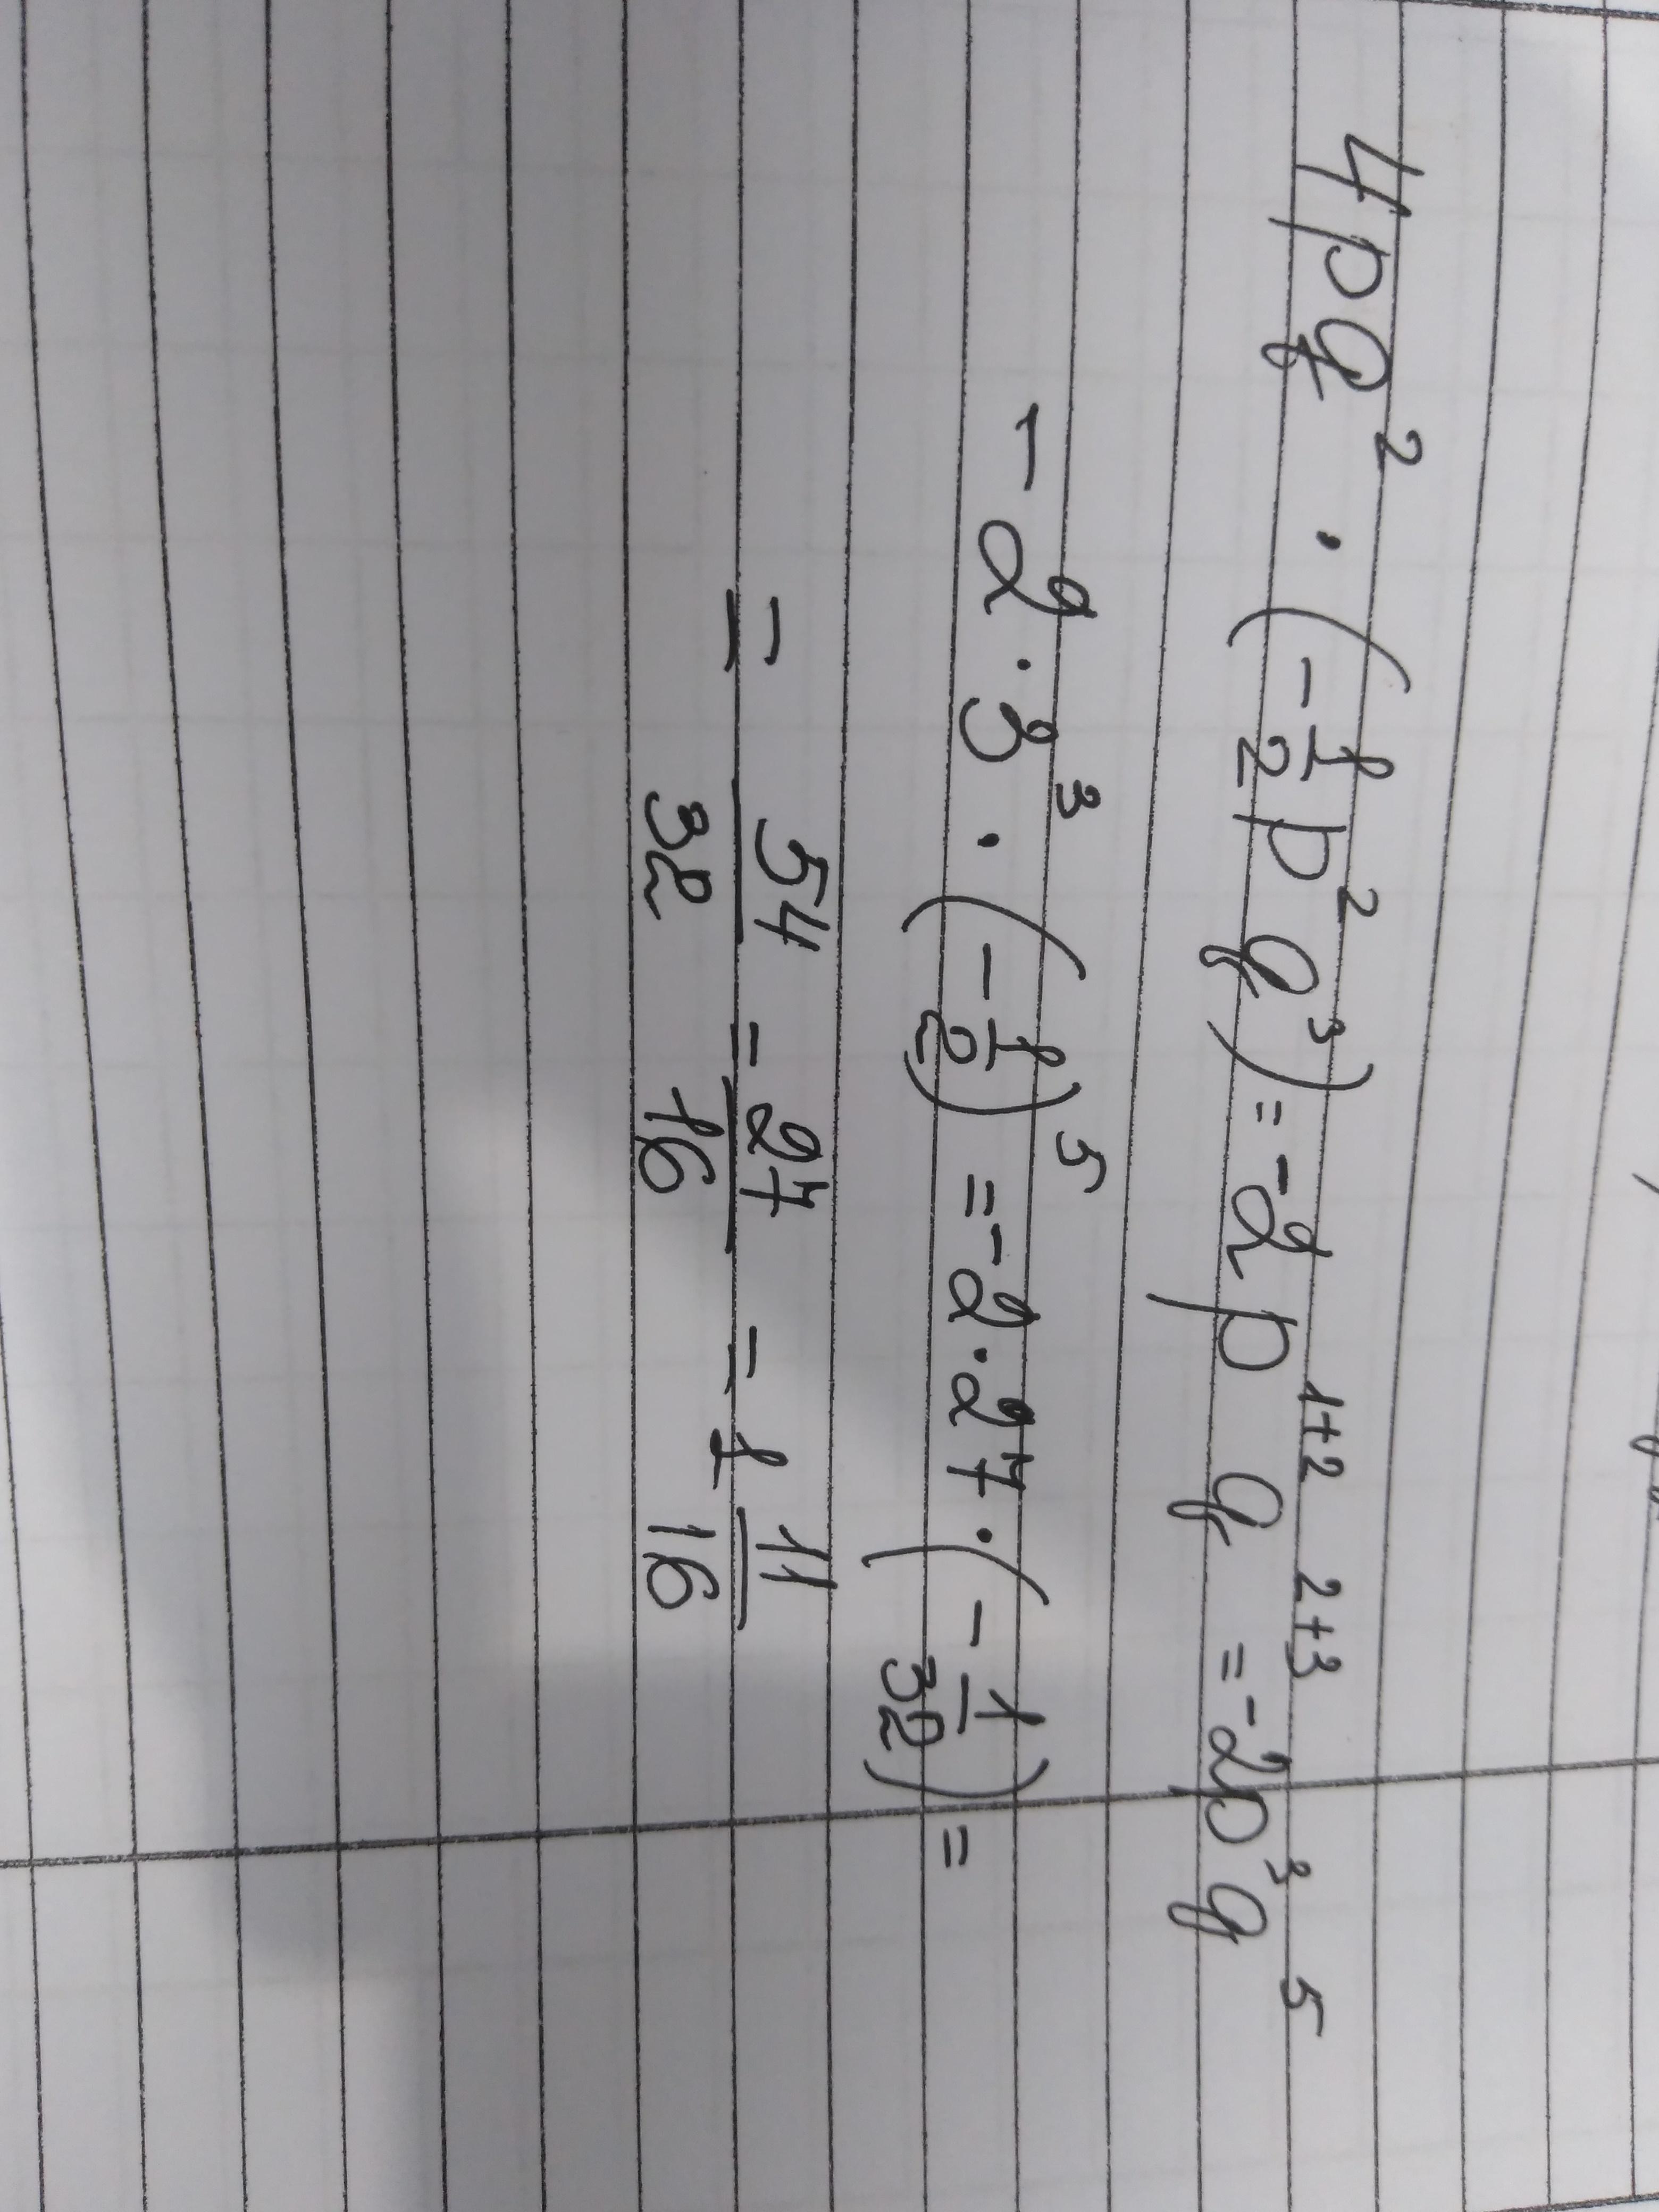 4pq² · (-1/2 p²q³) = -2p¹⁺² q²⁺³ = -2p³q⁵
-2 · 3³ · (-1/2)⁵ = -2 · 27 · (-1/32) =
= 54/32 = 27/16 = 1 11/16